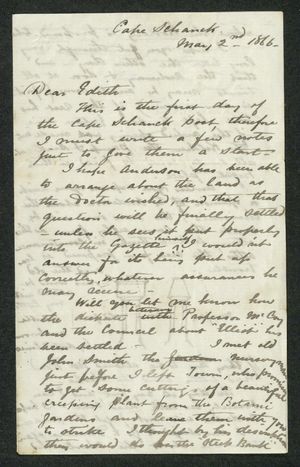 Cape Schanck
May 2nd 1866-
Dear Edith
This is the first day of
the Cape Schanck post, therefore
I must write a few notes
just to give them a start -
I hope Anderson has been able
to arrange about the land as
the Doctor wished, and that that
question will be finally settled
- unless he sees it put properly
into the Gazette himself I would not
answer for its being put up
correctly, whatever assurances he
may receive -
Will you let me know how
the dispute between Professor McCoy
and the Council about "Ellis" has
been settled - I met old
John Smith the Gardener nurseryman
just before I left Town, who promised
to get some cuttings of a beautiful
creeping plant from the Botanic
Gardens and leave them with you
to strike I thought by his description
they would do on the "Rock Bank"